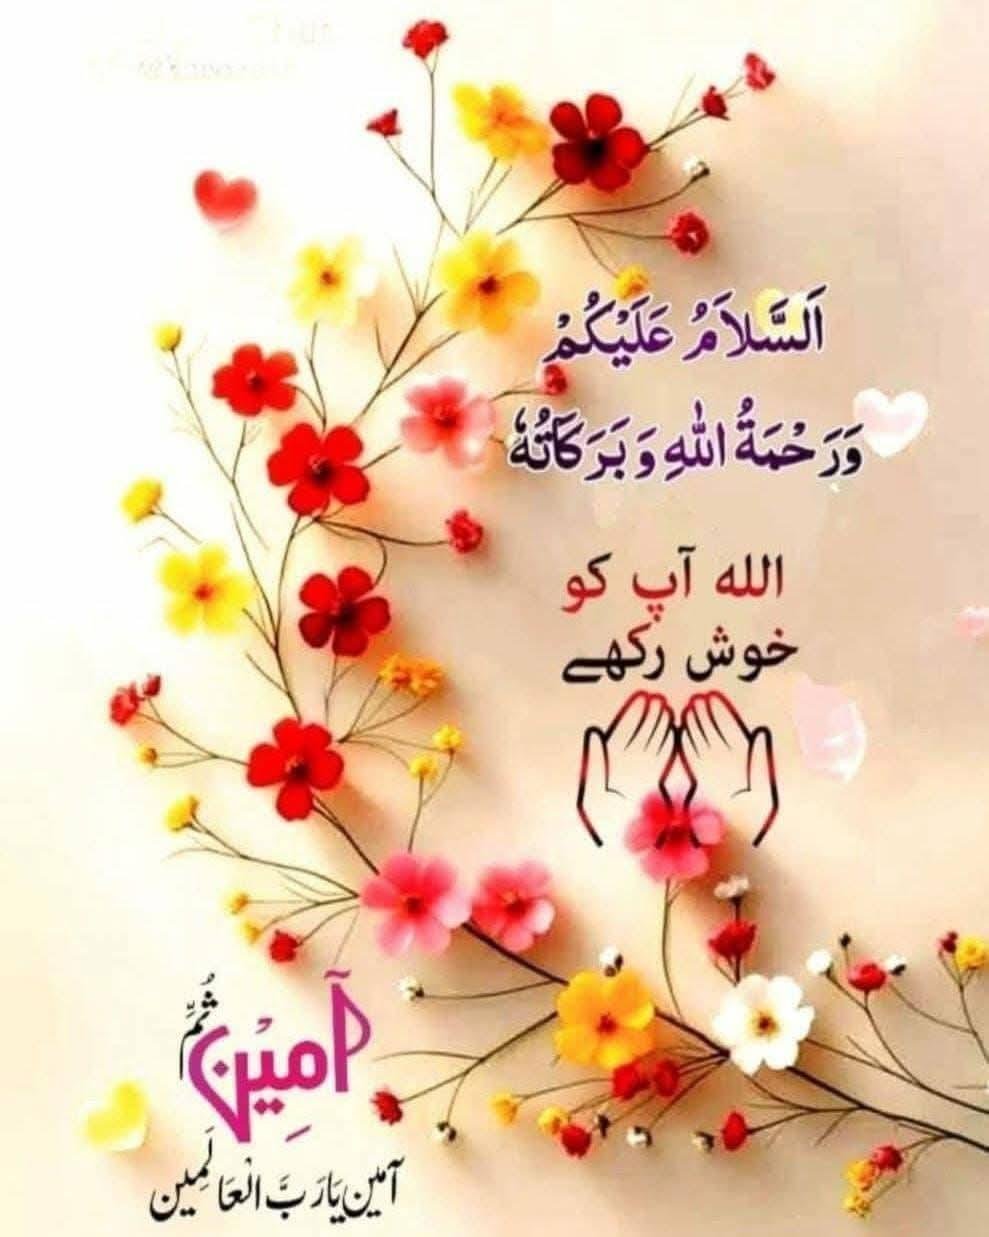 اَلسَّلاَمُ عَلَيْكُمْ
وَرَحْمَةُ اللهِ وَبَرَكَاتُهٗ
الله آپ کو
خوش رکھے
آمِیْن ثُمَّ
آمین یَا رَبَّ الْعَالَمِین